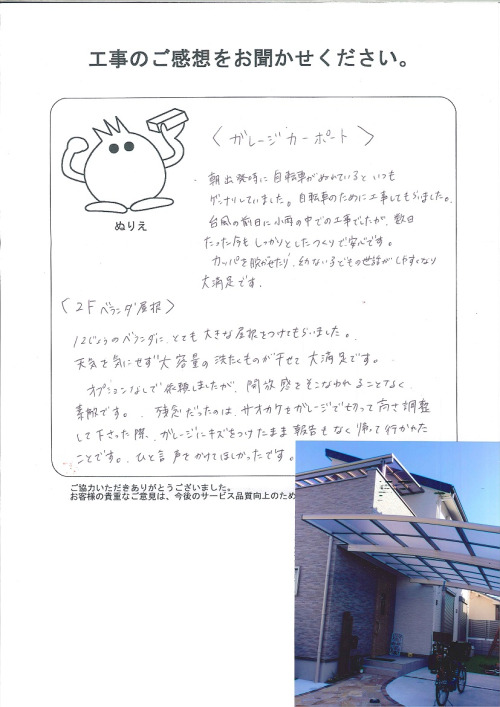 工事のご感想をお聞かせください。
〈ガレージカーポート〉
朝出発時に自転車がぬれているといつも
ゲンナリしていました。自転車のために工事してもらいました。
台風の前日に小雨の中での工事でしたが、数日
たった今もしっかりとしたつくりで安心です。
カッパを脱がせたり、幼ない子どもの世話がしやすくなり
大満足です。
ぬりえ
〈2Fベランダ屋根〉
12じょうのベランダに、とても大きな屋根をつけてもらいました。
天気を気にせず大容量の洗たくものが干せて大満足です。
オプションなしで依頼しましたが、開放感をそこなわれることなく
素敵です。残念だったのは、サオカケをガレージで切って高さ調整
して下さった際、ガレージにキズをつけたまま報告もなく帰って行かれた
ことです。ひと言声をかけてほしかったです。
ご協力いただきありがとうございました。
お客様の貴重なご意見は、今後のサービス品質向上のため